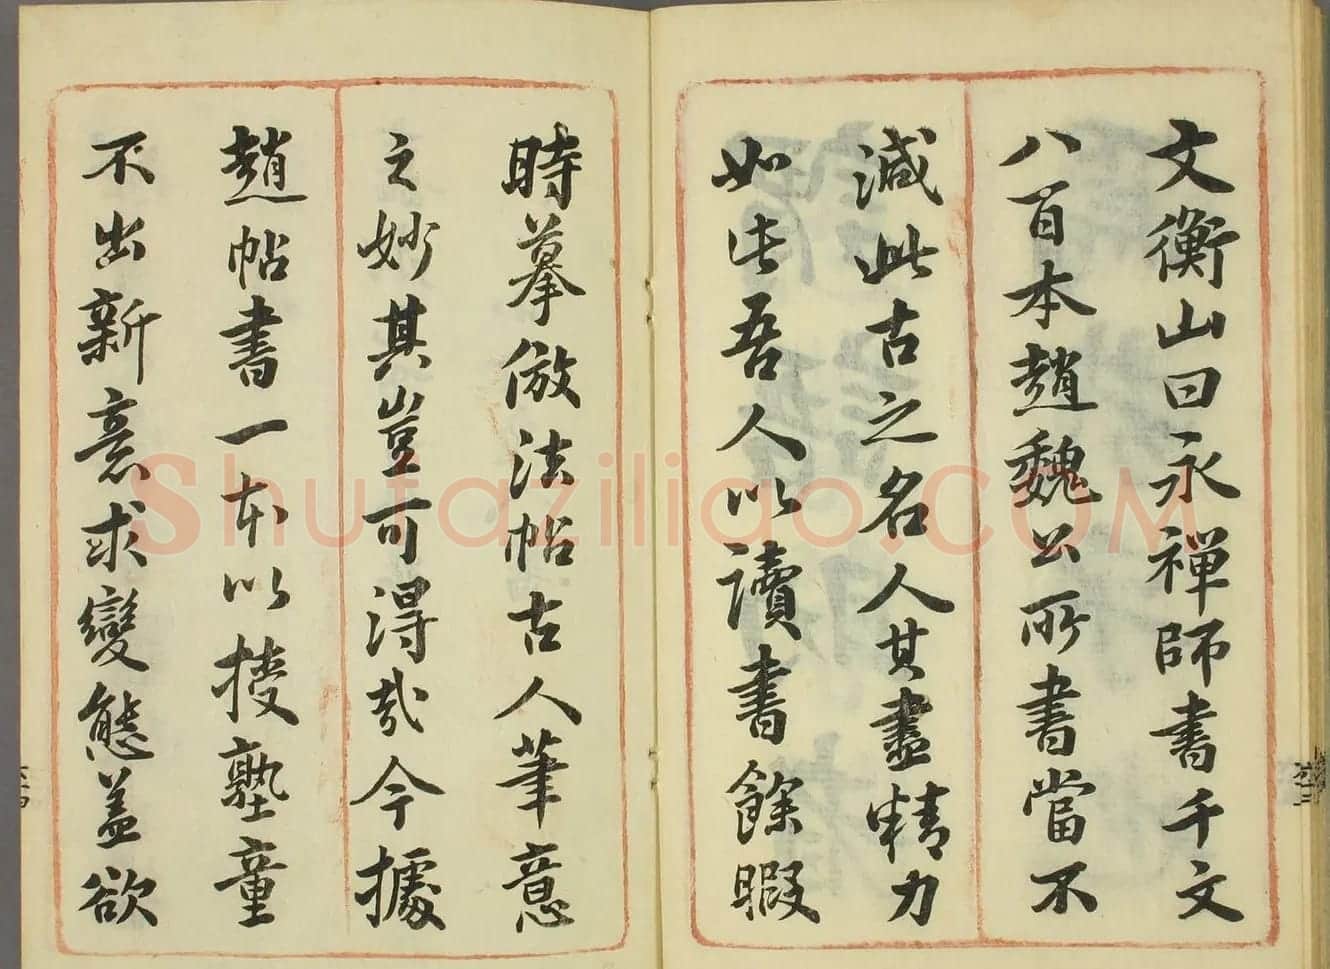 文衡山曰永禅師書千文
八百本趙魏公所書當不
減此古之名人其盡精力
如此吾人以讀書餘暇
時摹倣法帖古人筆意
之妙其豈可得哉今據
趙帖書一本以授塾童
不出新意求變態蓋欲
Shufaziliao.COM